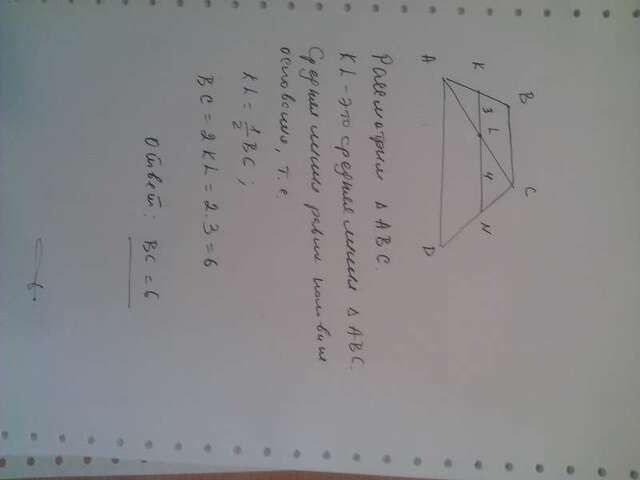 A K B
3 L 4
C N
D
Рассмотрим Δ ABC.
KL - это средняя линия Δ ABC.
Средняя линия равна половине
основания, т.е.
KL = 1/2 BC;
BC = 2 KL = 2·3 = 6
Ответ: BC = 6